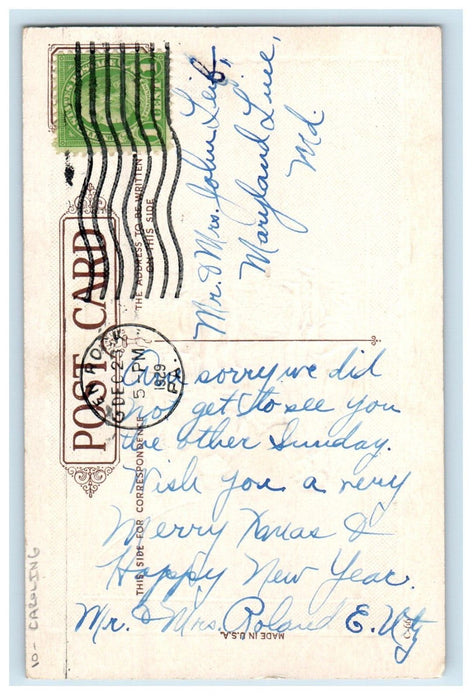 1 CENT 1
POST CARD
THE ADDRESS TO BE WRITTEN
ON THIS SIDE
THIS SIDE FOR CORRESPONDENCE
DEC 23
5 PM
1929
PA.
Mr. & Mrs. John Leib,
Maryland Line,
Md.
Are sorry we did
not get to see you
the other Sunday.
Wish you a very
Merry Xmas &
Happy New Year.
Mr. & Mrs. Roland E. Utz
MADE IN U.S.A.
10- CAROLING